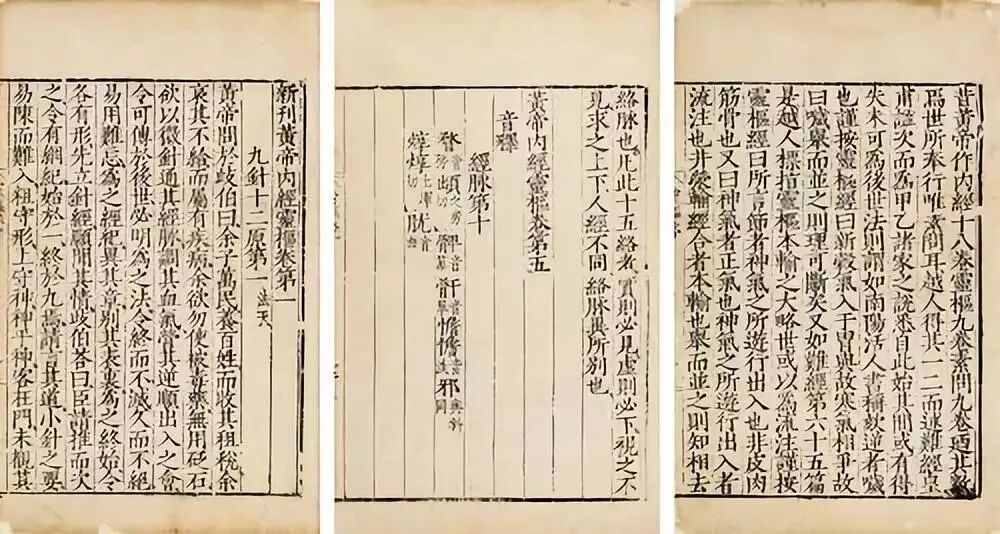 昔黃帝作内經十八卷靈樞九卷素問九卷廼其數
焉世所奉行唯素問耳越人得其一二而述難經皇
甫謐次而為甲乙諸家之說悉自此始其間或有得
失未可為後世法則謂如南陽活人書稱欬逆者噦
也謹按靈樞經曰新穀氣入于胃與故寒氣相爭故
曰噦舉而並之則理可斷矣又如難經第六十五篇
是越人標指靈樞本輸之大略世或以為流注謹按
靈樞經曰所言節者神氣之所遊行出入也非皮肉
筋骨也又曰神氣者正氣也神氣之所遊行出入者
流注也井滎輸經合者本輸也舉而並之則知相去
絡脉也凡此十五絡者實則必見虛則必下視之不
見求之上下人經不同絡脉異所别也
黃帝内經靈樞卷第五
音釋
經脉第十
新刊黃帝内經靈樞卷第一
九針十二原第一 法天
黃帝問於歧伯曰余子萬民養百姓而收其租稅余
哀其不給而屬有疾病余欲勿使被毒藥無用砭石
欲以微針通其經脉調其血氣營其逆順出入之會
令可傳於後世必明為之法令終而不滅久而不絕
易用難忘為之經紀異其章别其表裏為之終始令
各有形先立針經願聞其情歧伯荅曰臣請推而次
之令有綱紀始於一終於九焉請言其道小針之要
易陳而難入粗守形上守神神乎神客在門未覩其